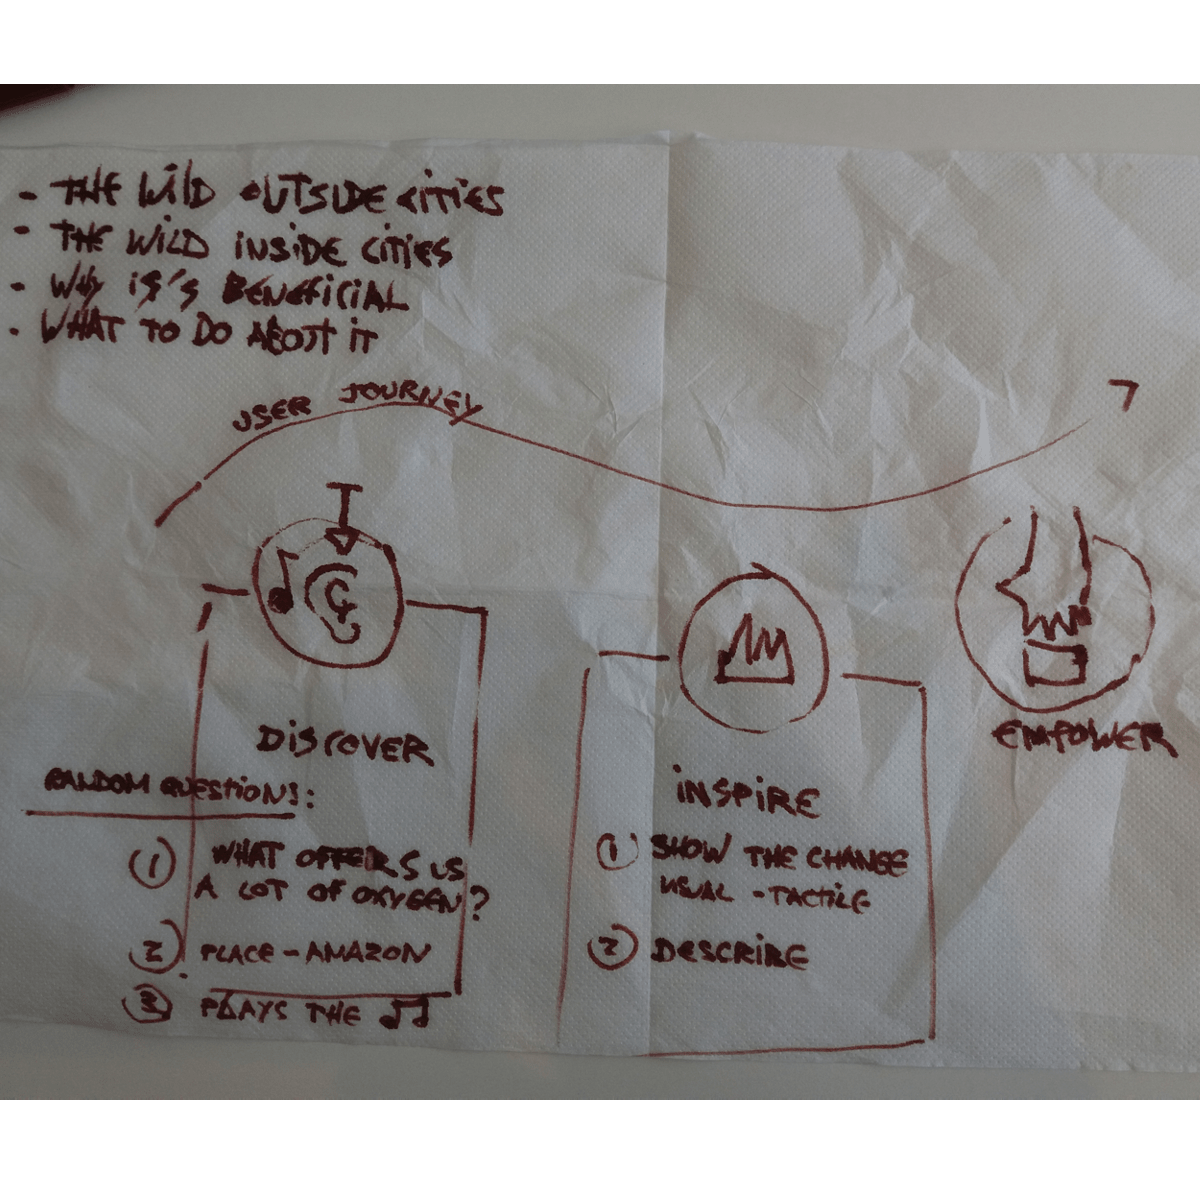 - THE WILD OUTSIDE CITIES
- THE WILD INSIDE CITIES
- WHY IS'S BENEFICIAL
- WHAT TO DO ABOUT IT
USER JOURNEY
DISCOVER
RANDOM QUESTIONS:
1 WHAT OFFERS US
A LOT OF OXYGEEN?
2 PLACE - AMAZON
3 PLAYS THE ♫
INSPIRE
1 SHOW THE CHANGE
- TACTILE
2 DESCRIBE
EMPOWER